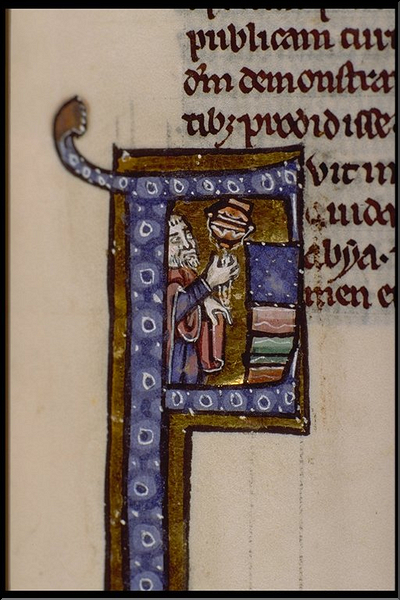 publicam curi
dm̄ demonstra
tibꝫ prodidisse
vit in
quida
abẏa.
men e